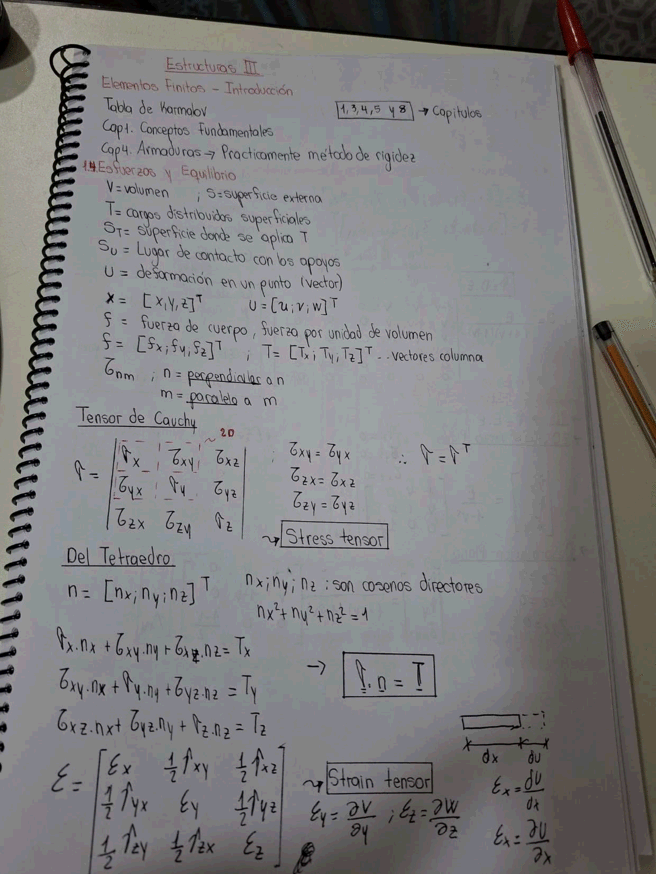 Estructuras III
Elementos Finitos - Introducción
Tabla de Karmalov
1,3,4,5 y 8 → Capitulos
Cap1. Conceptos Fundamentales
Cap4. Armaduras → Practicamente método de rigidez
1.4 Esfuerzos y Equilibrio
V = volumen ; S = superficie externa
T = cargas distribuidas superficiales
S_T = superficie donde se aplica T
S_U = Lugar de contacto con los apoyos
U = deformación en un punto (vector)
x = [x,y,z]^T U = [u;v;w]^T
f = fuerza de cuerpo, fuerza por unidad de volumen
f = [fx;fy,fz]^T ; T = [Tx;Ty,Tz]^T .. vectores columna
τnm ; n = perpendicular a n
m = paralelo a m
Tensor de Cauchy
~ 2D
σ = | σx τxy τxz |
| τyx σy τyz |
| τzx τzy σz |
τxy = τyx
τzx = τxz
τzy = τyz
∴ σ = σ^T
↝ Stress tensor
Del Tetraedro
n = [nx;ny;nz]^T nx;ny;nz : son cosenos directores
nx²+ny²+nz²=1
σx.nx + τxy.ny + τxz.nz = Tx
τxy.nx + σy.ny + τyz.nz = Ty
τxz.nx + τyz.ny + σz.nz = Tz
→ σ.n = T
ε = [ εx ½γxy ½γxz
½γyx εy ½γyz
½γzy ½γzx εz ]
↝ Strain tensor
εy = ∂V/∂y ; εz = ∂W/∂z
dx du
εx = dU/dx
εx = ∂U/∂x